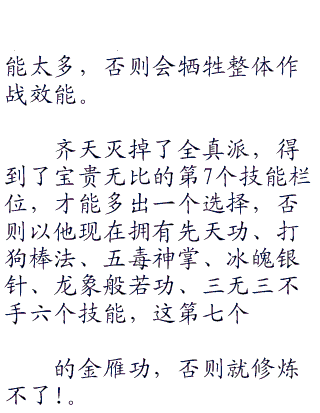 能太多，否则会牺牲整体作
战效能。
齐天灭掉了全真派，得
到了宝贵无比的第7个技能栏
位，才能多出一个选择，否
则以他现在拥有先天功、打
狗棒法、五毒神掌、冰魄银
针、龙象般若功、三无三不
手六个技能，这第七个
的金雁功，否则就修炼
不了!。